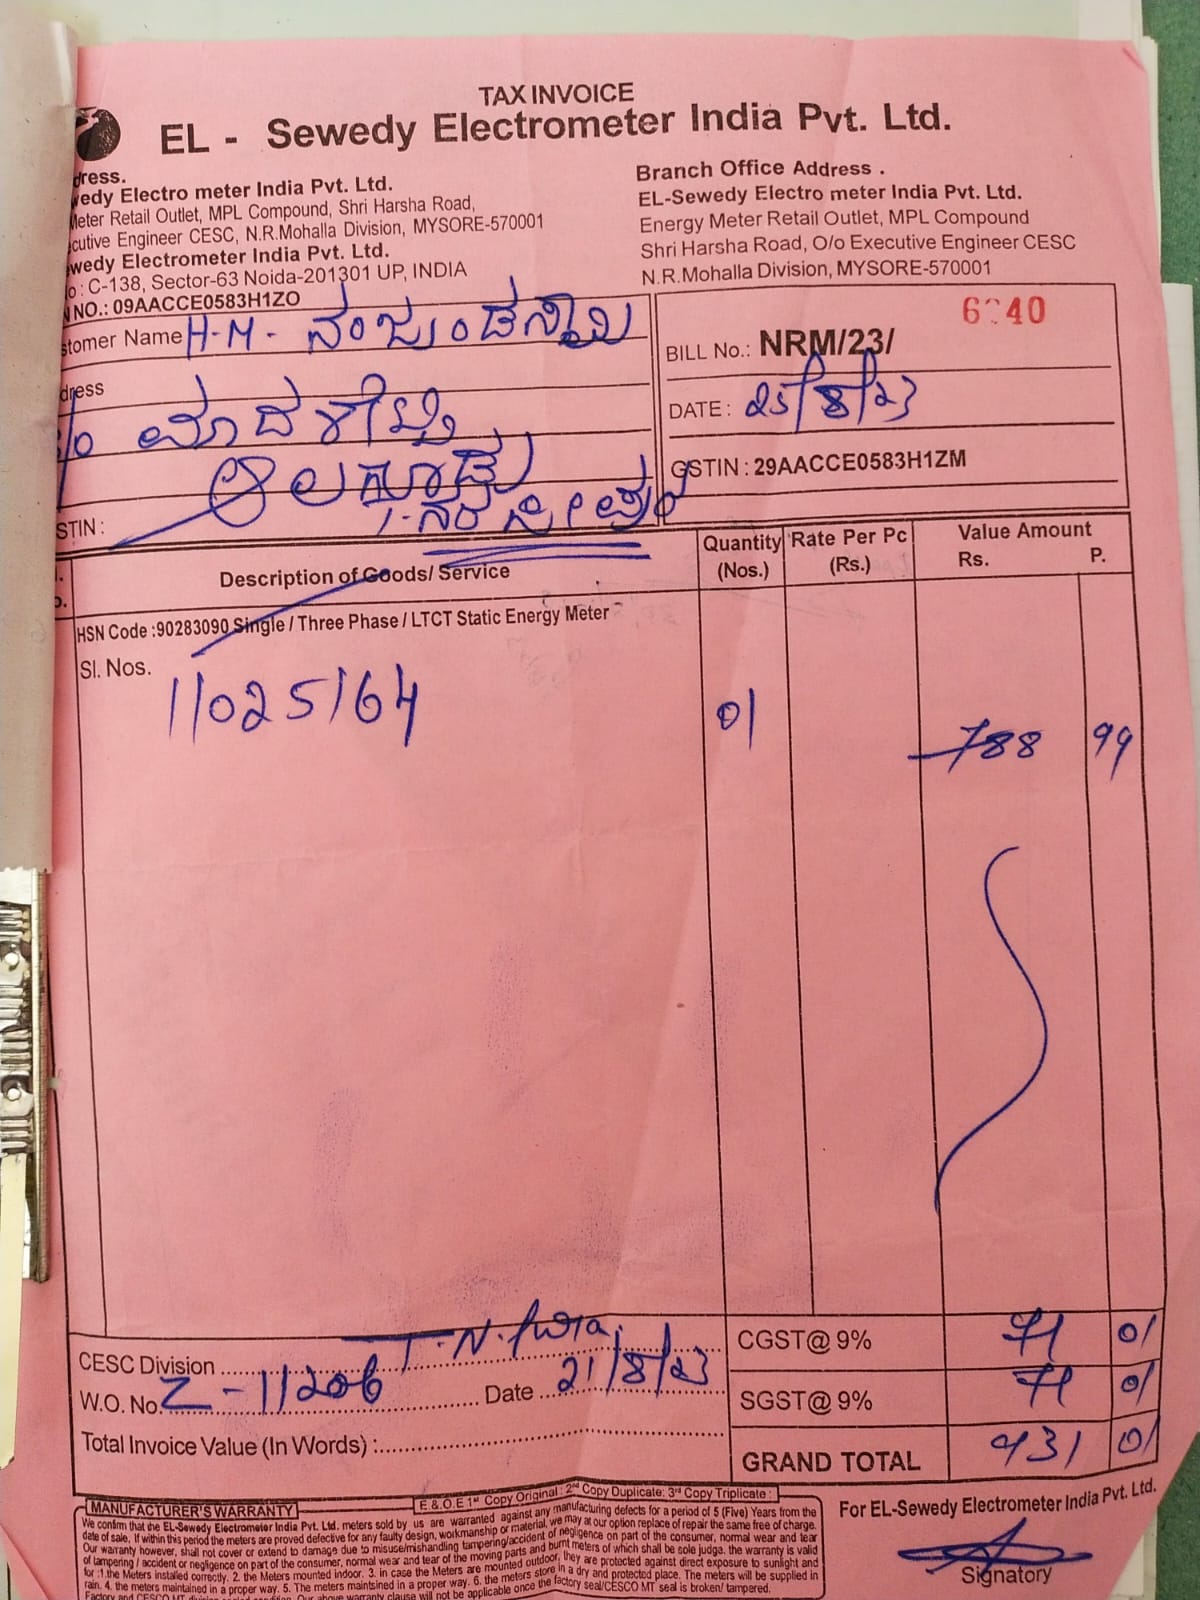 TAX INVOICE
EL - Sewedy Electrometer India Pvt. Ltd.
dress.
wedy Electro meter India Pvt. Ltd.
Meter Retail Outlet, MPL Compound, Shri Harsha Road,
cutive Engineer CESC, N.R.Mohalla Division, MYSORE-570001
wedy Electrometer India Pvt. Ltd.
o : C-138, Sector-63 Noida-201301 UP, INDIA
NO.: 09AACCE0583H1ZO
Branch Office Address .
EL-Sewedy Electro meter India Pvt. Ltd.
Energy Meter Retail Outlet, MPL Compound
Shri Harsha Road, O/o Executive Engineer CESC
N.R.Mohalla Division, MYSORE-570001
stomer Name H-M- ನಂಜುಂಡಸ್ವಾಮಿ
dress
ಆಲಗೂಡು
T-ನರಸೀಪುರ
STIN :
BILL No.: NRM/23/
DATE : 25/8/23
GSTIN : 29AACCE0583H1ZM
Description of Goods/ Service
Quantity (Nos.)
Rate Per Pc (Rs.)
Value Amount
Rs. P.
HSN Code :90283090 Single / Three Phase / LTCT Static Energy Meter
Sl. Nos.
11025164 01 788 99
CESC Division
W.O. No. Z-11206 Date 21/8/23
Total Invoice Value (In Words) :
CGST@ 9% 71 01
SGST@ 9% 71 01
GRAND TOTAL 931 01
E.& O.E 1st Copy Original : 2nd Copy Duplicate: 3rd Copy Triplicate :
MANUFACTURER'S WARRANTY
We confirm that the EL-Sewedy Electrometer India Pvt. Ltd. meters sold by us are warranted against any manufacturing defects for a period of 5 (Five) Years from the
date of sale. If within this period the meters are proved defective for any faulty design, workmanship or material, we may at our option replace of repair the same free of charge.
Our warranty however, shall not cover or extend to damage due to misuse/mishandling tampering/accident of negligence on part of the consumer, normal wear and tear
of tampering / accident or negligence on part of the consumer, normal wear and tear of the moving parts and burnt meters of which shall be sole judga. the warranty is valid
for :1.the Meters installed correctly. 2. the Meters mounted indoor. 3. in case the Meters are mounted outdoor, they are protected against direct exposure to sunlight and
rain. 4. the meters maintained in a proper way. 5. The meters maintsined in a proper way. 6. the meters store in a dry and protected place. The meters will be supplied in
once the factory seal/CESCO MT seal is broken/ tampered.
For EL-Sewedy Electrometer India Pvt. Ltd.
Signatory